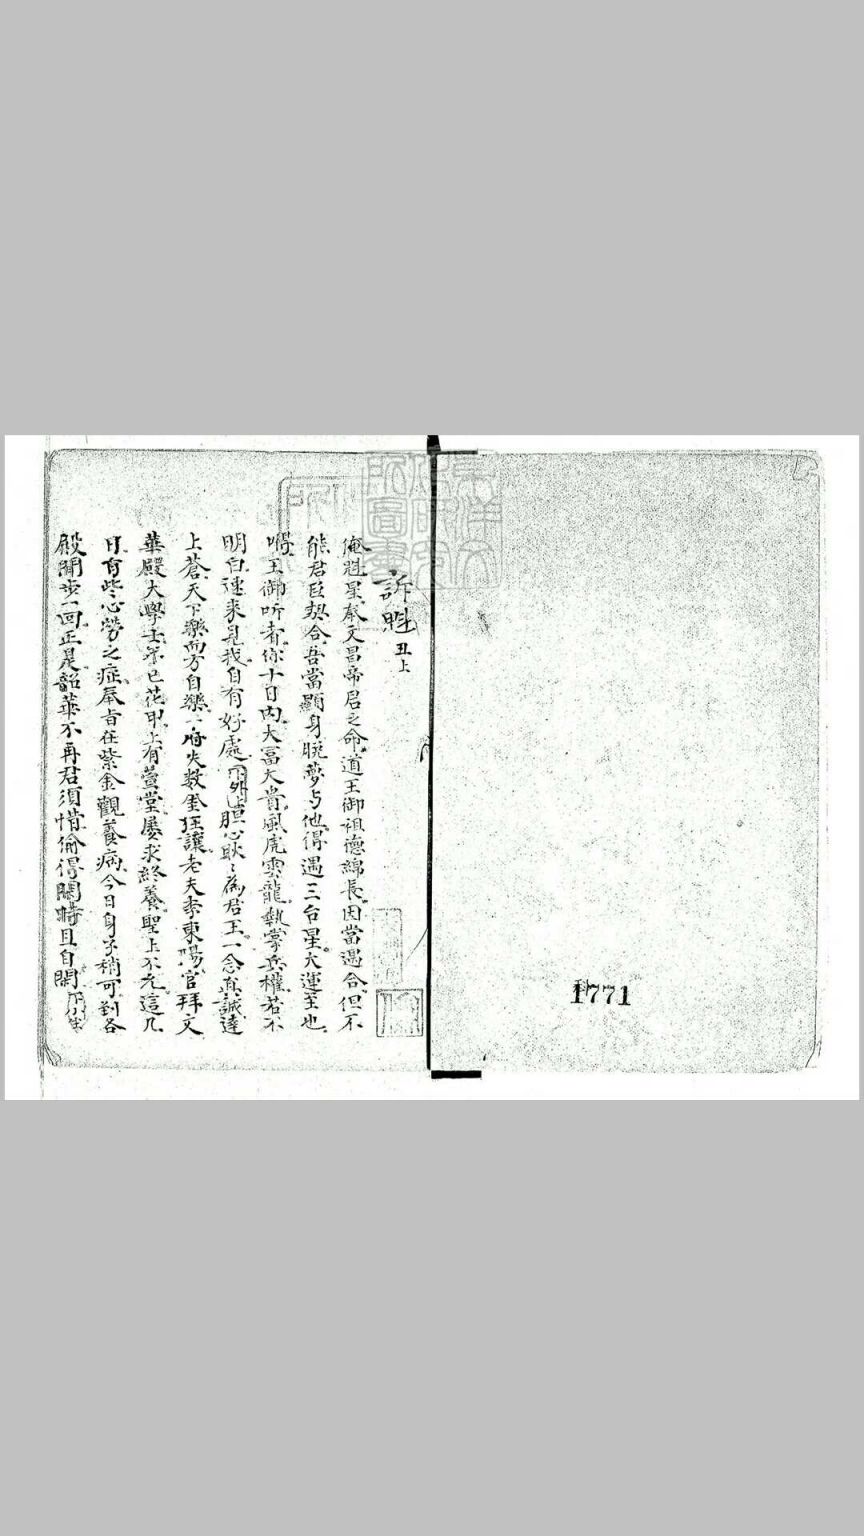 訴魁 丑上
俺魁星奉文昌帝君之命道王御祖德綿長因當遇合但不
能君臣契合吾當顯身脫夢与他得遇三台星大運至也
王御听者你十日內大富大貴風虎雲龍執掌兵權若不
明白速來見我自有好處下外上胆心耿〻為君王一念真誠達
上蒼天下樂而方自樂 老夫李東陽官拜文
華殿大學士年已花甲上有萱堂屢求終養聖上不允這几
日有些心勞之症奉旨在紫金觀養病今日身子稍可到各
殿閒步一回正是韶華不再君須惜偷得閑時且自閑下小生
科1771
東洋文化研究所圖書